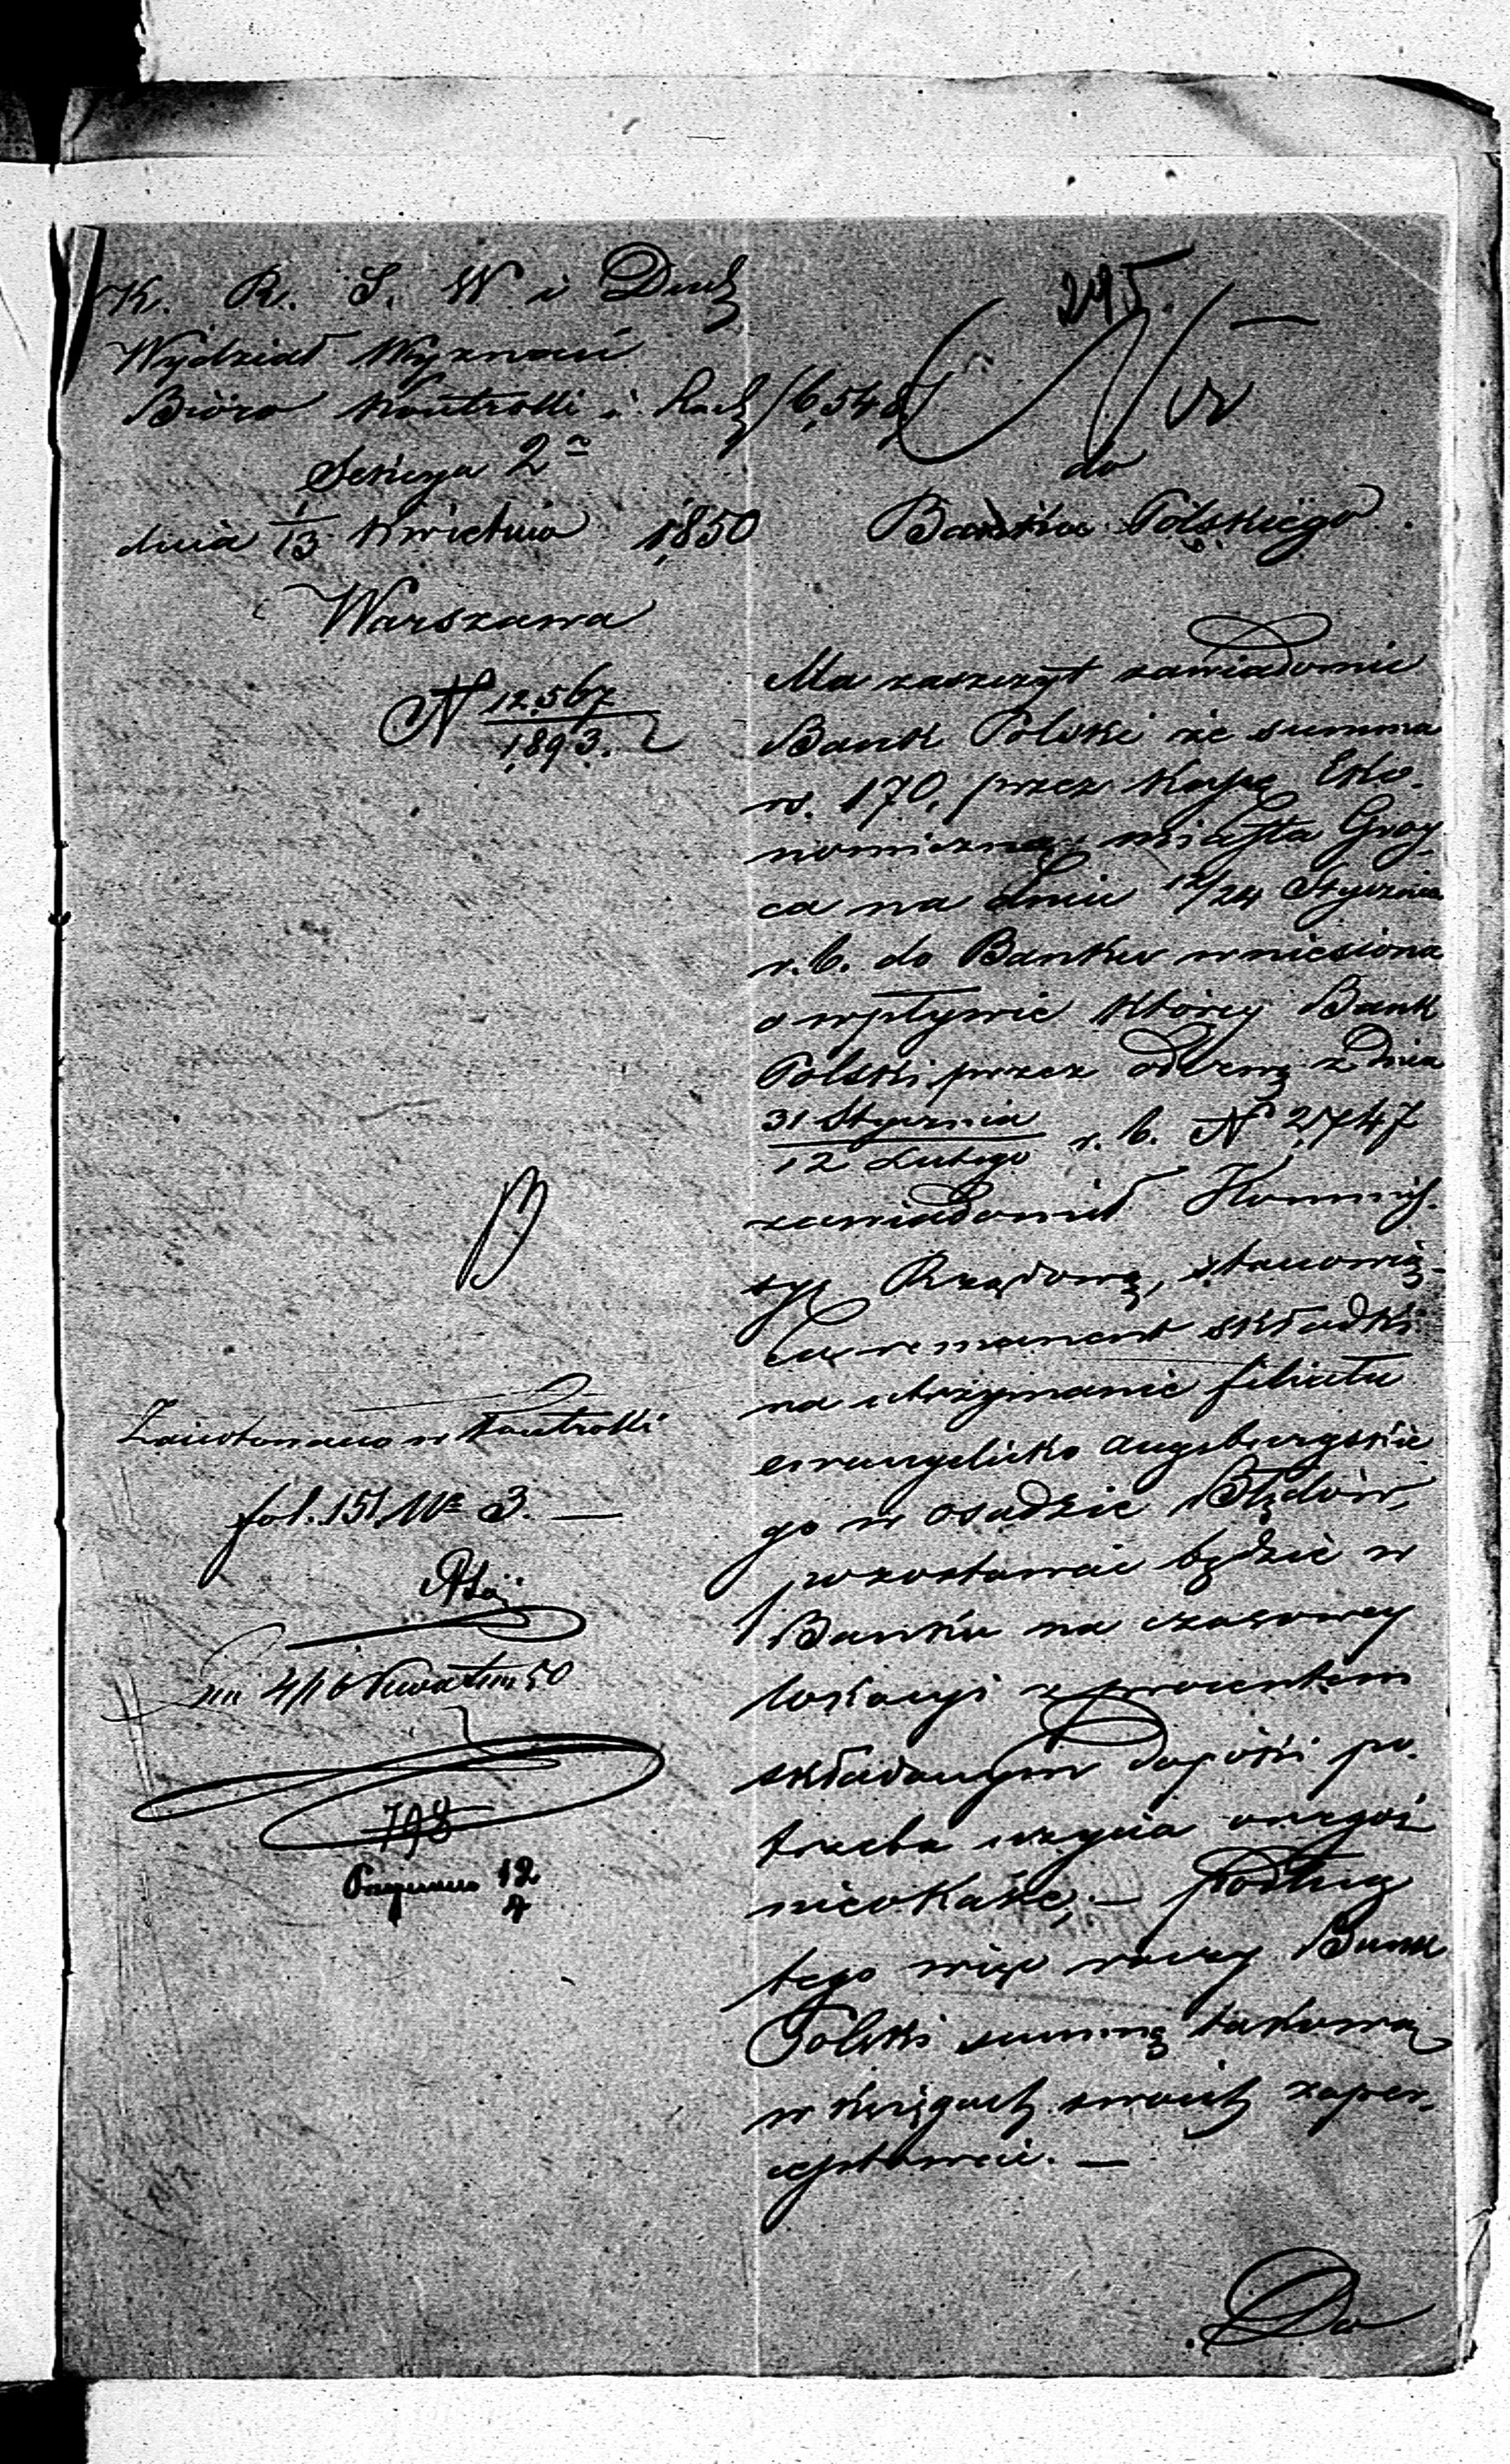 K. R. S. W i Duch
Wydział Wyznań
Bióro Kontrolli i Rach /6,548/
Sekcya 2ª
dnia 1/13 Kwietnia 1850
Warszawa
N 12,567/1893.
295.
do
Banku Polskiego.
Ma zaszczyt zawiadomić
Bank Polski że summa
rs. 170, przez Kassę Eko-
nomiczną miasta Gróy-
ca na dniu 12/24 Stycznia
r. b. do Banku wniesiona
o wpływie którey Bank
Polski przez odezwę z dnia
31 Stycznia/12 Lutego r. b. N 2,747
zawiadomił Kommis-
syę Rządową, stanowią-
ca remanent składki
na utrzymanie filiału
ewangelicko Augsburgskie
go w osadzie Błędów,
pozostawać będzie w
Banku na czasowey
lokacyi z procentem
składanym dopóki po-
trzeba użycia onegoż
nieokaże; — Podług
tego więc raczy Bank
Polski summę takową
w księgach swoich zaper-
cyptować. —
Do
Zanotowano w Kontrolli
fol. 151 No 3. —
4/16 Kwietnia 50
798
12/4